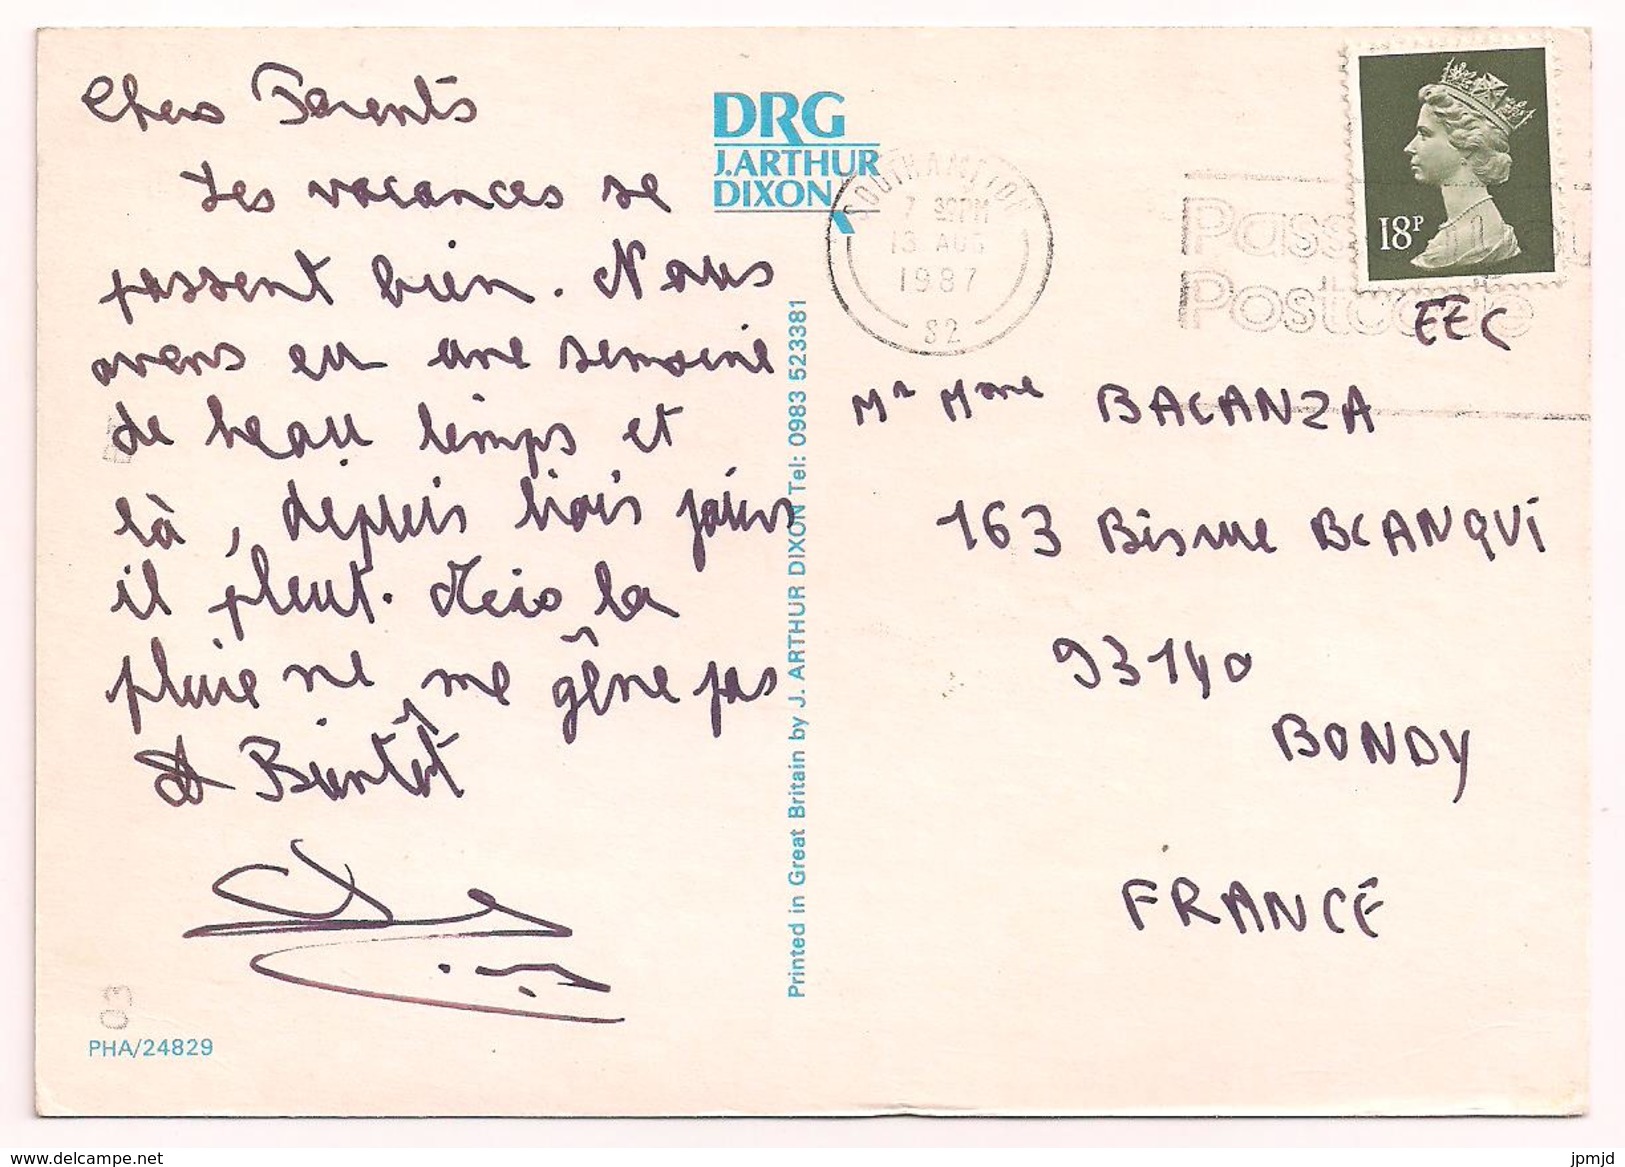 Chers Parents
Les vacances se
passent bien. Nous
avons eu une semaine
de beau temps et
là, depuis trois jours
il pleut. Mais la
pluie ne me gêne pas
A Bientôt
PHA/24829
03
DRG
J.ARTHUR
DIXON
Printed in Great Britain by J. ARTHUR DIXON Tel: 0983 523381
SOUTHAMPTON
13 AUG
1987
S2
18P
Postcode
EEC
Mr Mme BACANZA
163 Bis rue BLANQUI
93140
BONDY
FRANCE
www.delcampe.net
jpmjd